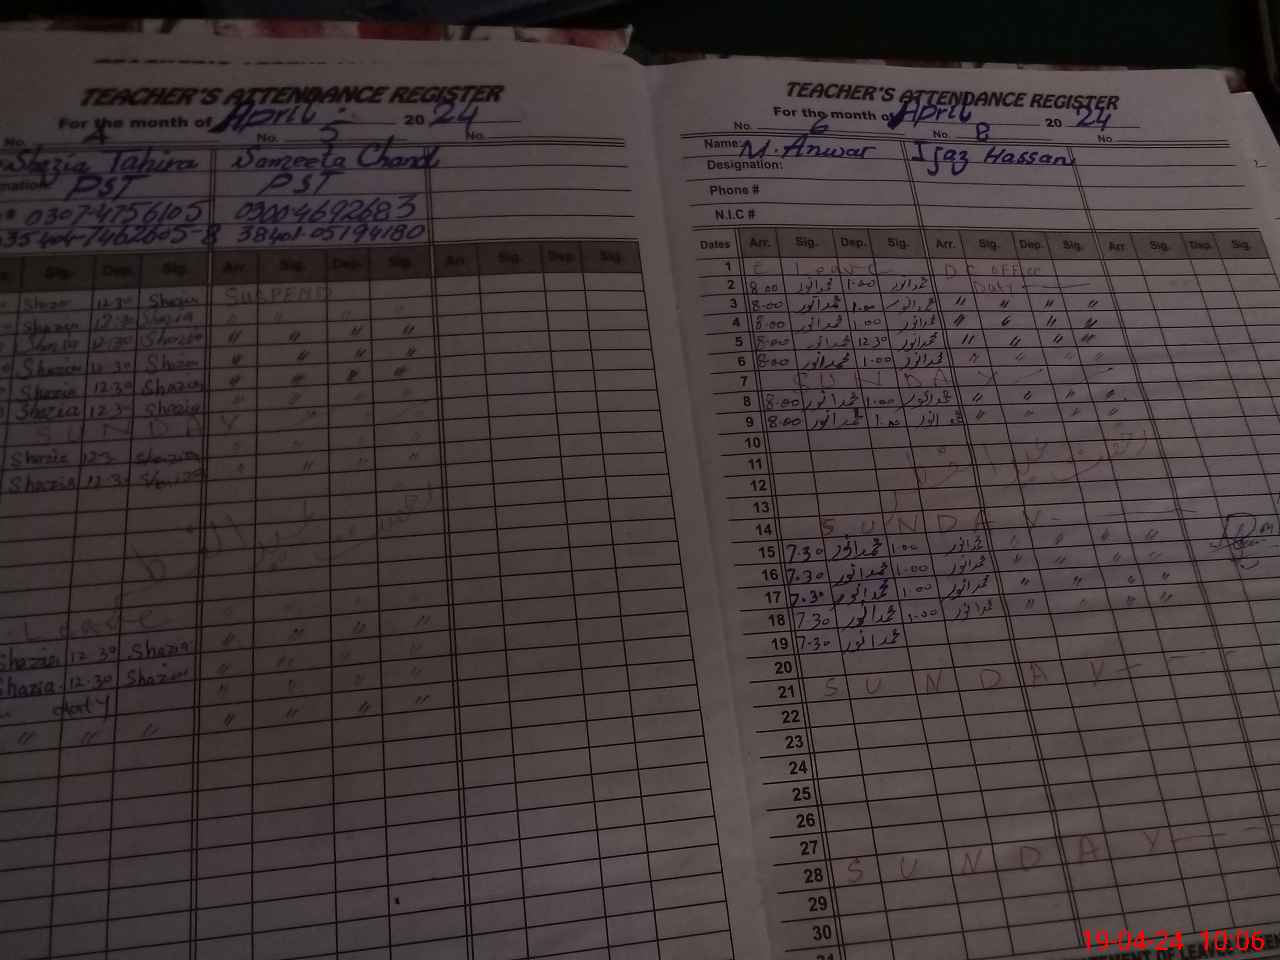 TEACHER'S ATTENDANCE REGISTER
For the month of April 2024
No. 4 No. 5 No.
Shazia Tahira Sameeta Chand
PST PST
0307-4756105 0300-4692683
35404-7462605-8 38401-05194180
Sig. Dep. Sig. Arr. Sig. Dep. Sig. Arr. Sig. Dep. Sig.
Shazia 12.30 Shazia SUSPEND
Shazia 12.30 Shazia " " " "
Shazia 12.30 Shazia " " " "
Shazia 12.30 Shazia " " " "
Shazia 12.30 Shazia " " " "
Shazia 12.30 Shazia " " " "
SUNDAY
Shazia 12.3 Shazia " " " "
Shazia 12.30 Shazia " " " "
Leave " " " "
Shazia 12.30 Shazia " " " "
Shazia 12.30 Shazia " " " "
duty " " " "
" " " " " " "
TEACHER'S ATTENDANCE REGISTER
For the month of April 2024
No. 6 No. 8 No.
Name: M. Anwar Ijaz Hassan
Designation:
Phone #
N.I.C #
Dates Arr. Sig. Dep. Sig. Arr. Sig. Dep. Sig. Arr. Sig. Dep. Sig.
1 C Leave DC office
2 8.00 محمد انور 1.00 محمد انور Duty
3 8.00 محمد انور 1.00 محمد انور " " " "
4 8.00 محمد انور 1.00 محمد انور " " " "
5 8.00 محمد انور 12.30 محمد انور " " " "
6 8.00 محمد انور 1.00 محمد انور " " " "
7 SUNDAY
8 8.00 محمد انور 1.00 محمد انور " " " "
9 8.00 محمد انور 1.00 محمد انور " " " "
10
11
12
13
14 SUNDAY
15 7.30 محمد انور 1.00 محمد انور " " " "
16 7.30 محمد انور 1.00 محمد انور " " " "
17 7.30 محمد انور 1.00 محمد انور " " " "
18 7.30 محمد انور 1.00 محمد انور " " " "
19 7.30 محمد انور
20
21 SUNDAY
22
23
24
25
26
27
28 SUNDAY
29
30
31
19-04-24 10:06